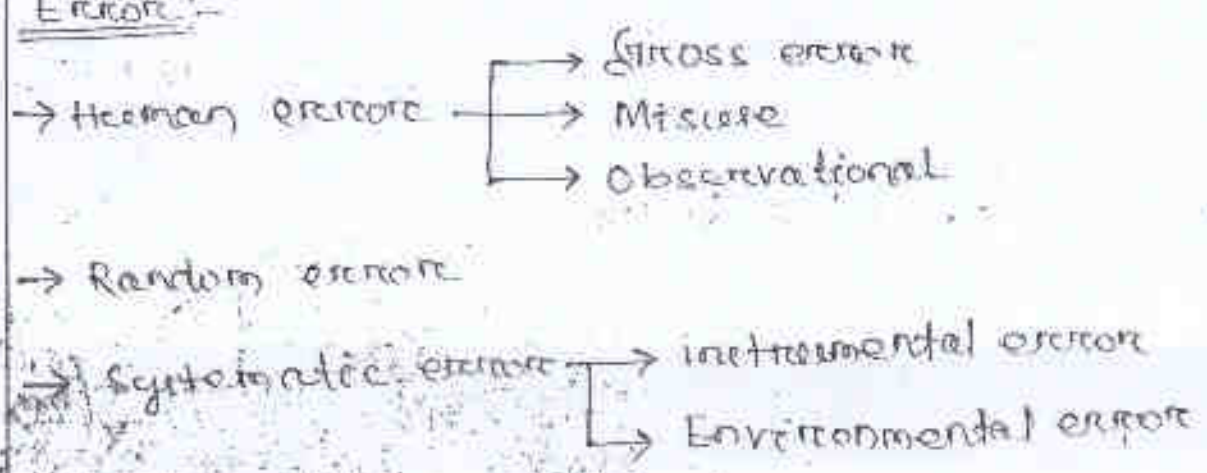 Error :-
→ Human error → Gross error
→ Misuse
→ Observational
→ Random error
→ Systematic error → instrumental error
→ Environmental error